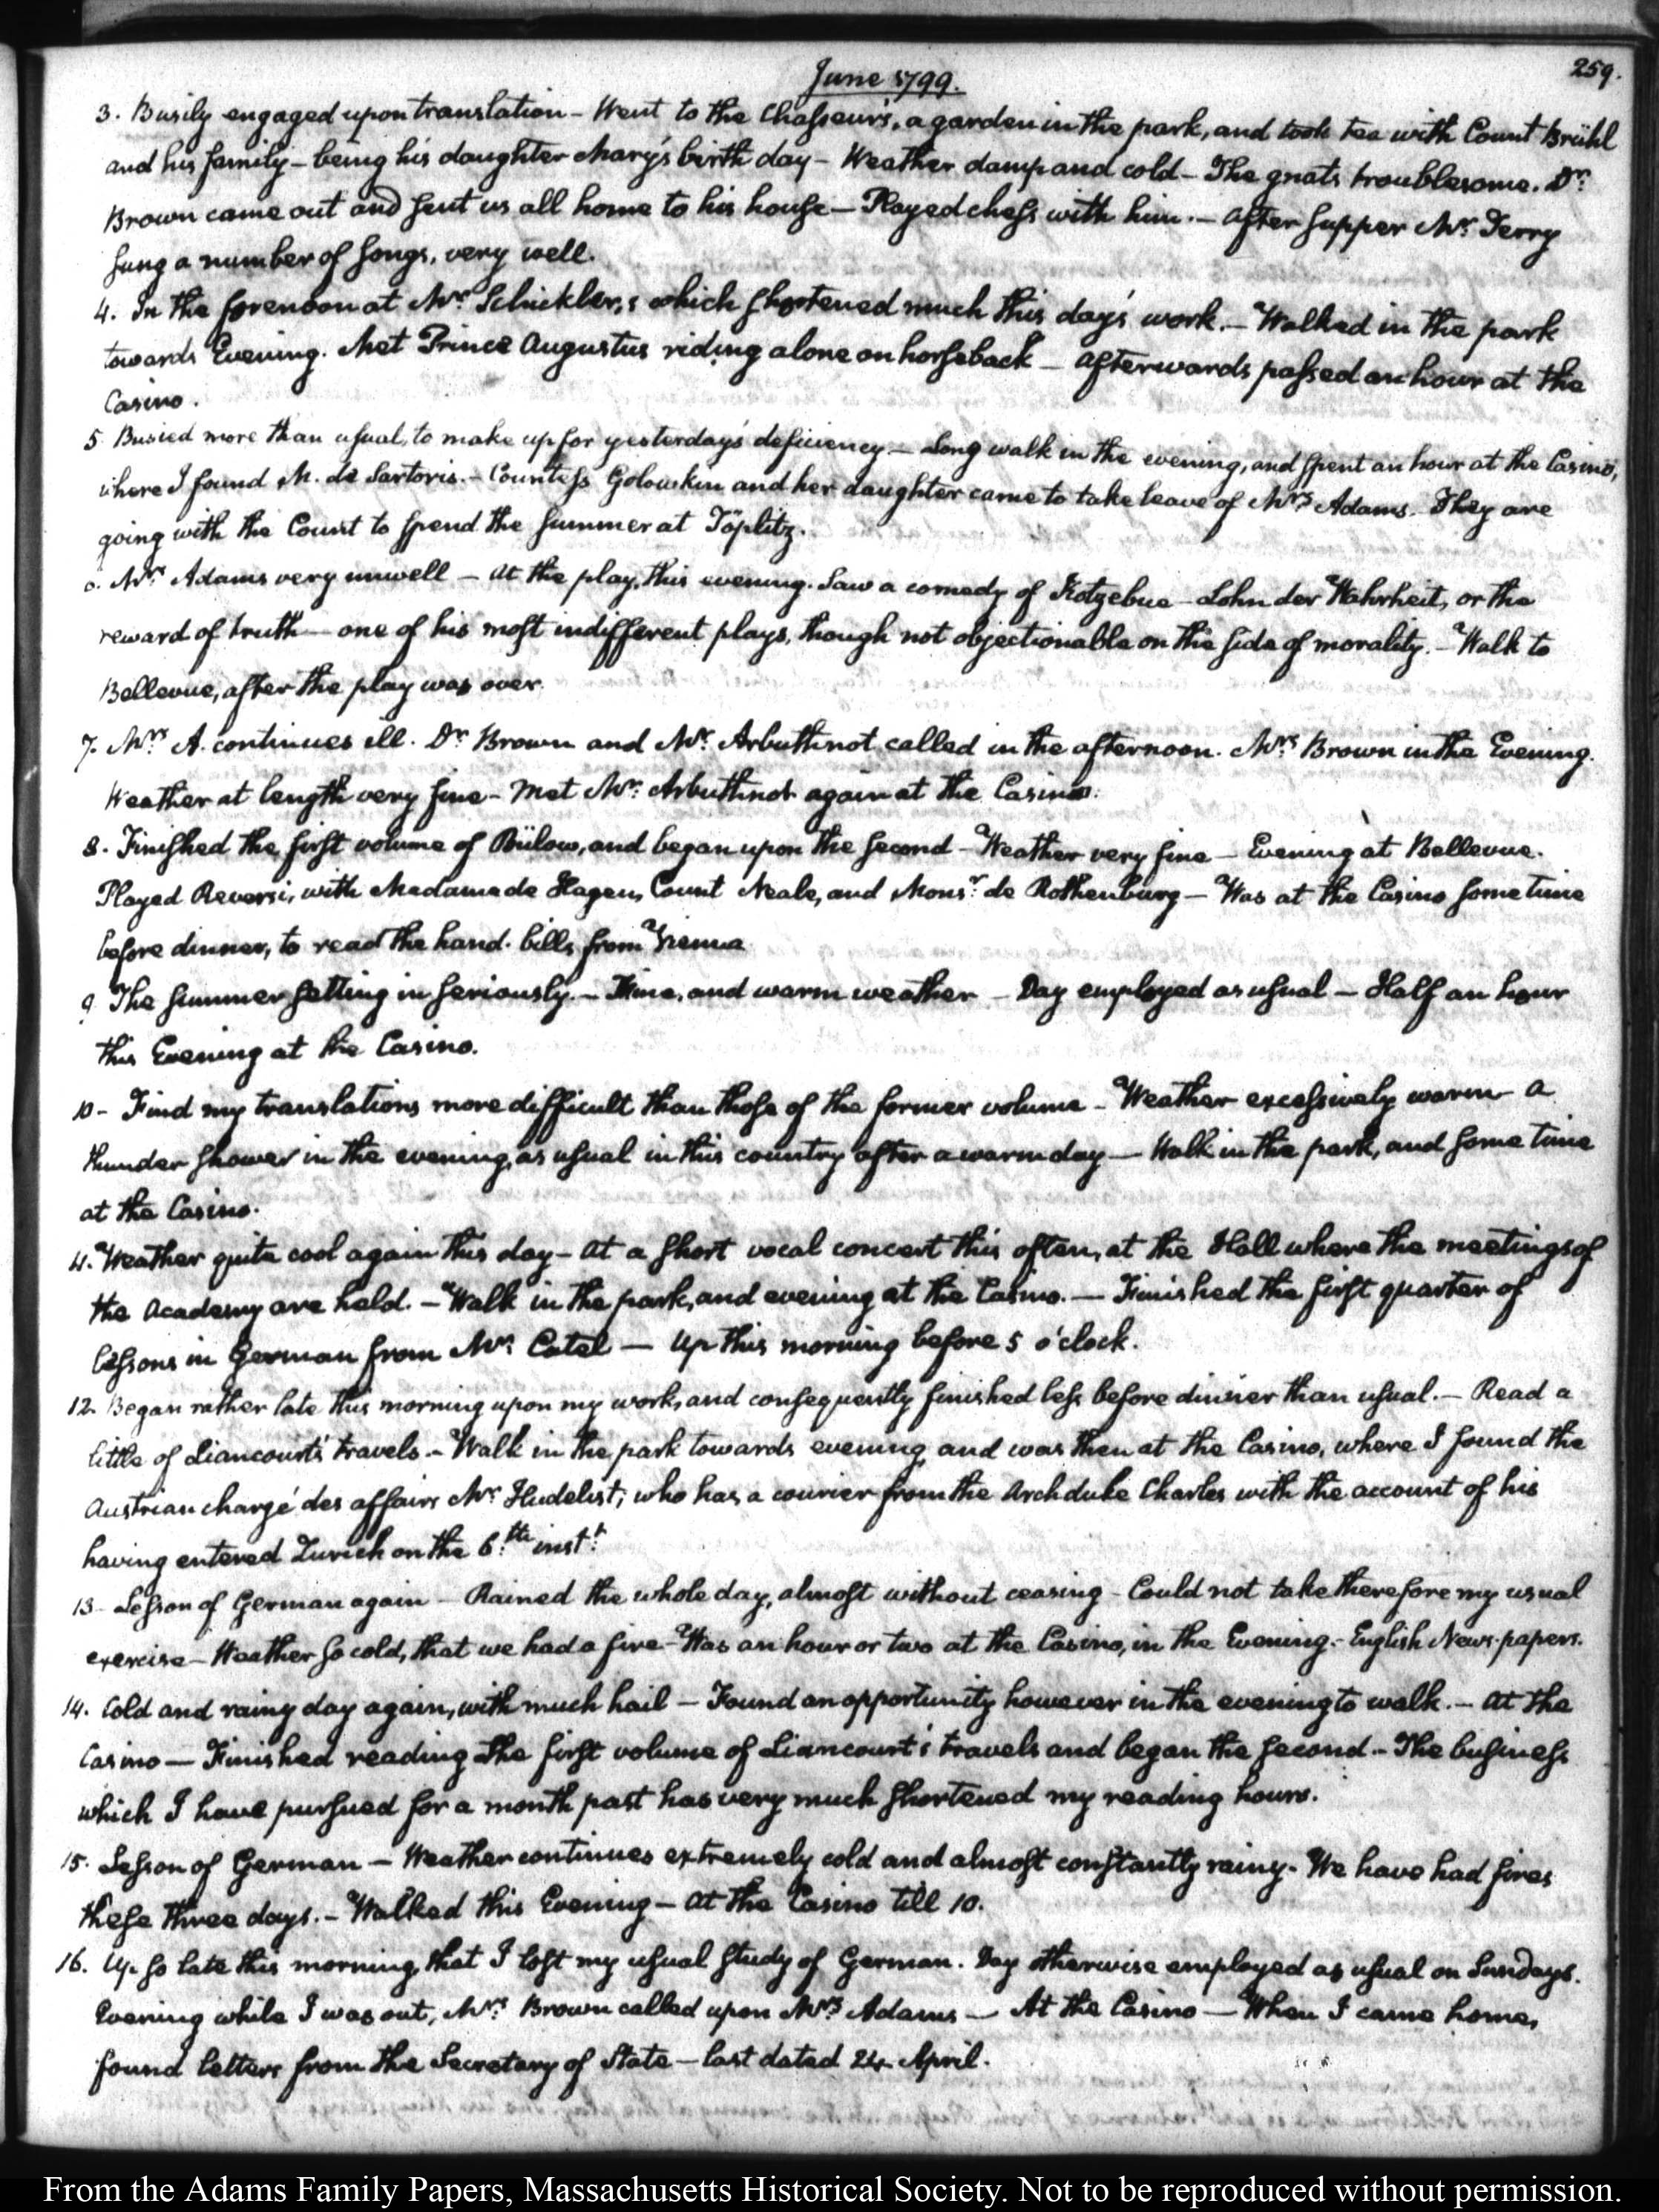 259.
June 1799.
3. Busily engaged upon translation - Went to the Chasseur's, a garden in the park, and took tea with Count Brühl
and his family - being his daughter Mary's birth day - Weather damp and cold - The gnats troublesome. Dr:
Brown came out and sent us all home to his house - Played chess with him. - After supper Mr: Terry
sung a number of songs, very well.
4. In the forenoon at Mr: Schickler,s which shortened much this day's work. - Walked in the park
towards Evening. Met Prince Augustus riding alone on horseback - Afterwards passed an hour at the
Casino.
5. Busied more than usual, to make up for yesterday's deficiency - Long walk in the evening, and spent an hour at the Casino,
where I found M. de Sartoris. - Countess Golowkin and her daughter came to take leave of Mrs: Adams. They are
going with the Count to spend the summer at Töplitz.
6. Mrs: Adams very unwell - At the play, this evening. Saw a comedy of Kotzebue - Lohn der Wahrheit, or the
reward of truth - one of his most indifferent plays, though not objectionable on the side of morality. - Walk to
Bellevue, after the play was over.
7. Mrs: A. continues ill. Dr: Brown and Mr: Arbuthnot called in the afternoon. Mrs: Brown in the Evening.
Weather at length very fine - Met Mr: Arbuthnot again at the Casino.
8. Finished the first volume of Bülow, and began upon the second - Weather very fine - Evening at Bellevue.
Played Reversi, with Madame de Hagen, Count Neale, and Monsr: de Rothenburg - Was at the Casino some time
before dinner, to read the hand-bills from Vienna
9 The summer setting in seriously. - Fine, and warm weather - Day employed as usual - Half an hour
this Evening at the Casino.
10 - Find my translations more difficult than those of the former volume - Weather excessively warm - A
thunder shower in the evening, as usual in this country after a warm day - Walk in the park, and some time
at the Casino.
11. Weather quite cool again this day - At a short vocal concert this aftern, at the Hall where the meetings of
the Academy are held. - Walk in the park, and evening at the Casino. - Finished the first quarter of
lessons in German from Mr: Catel - Up this morning before 5 o'clock.
12. Began rather late this morning upon my work, and consequently finished less before dinner than usual. - Read a
little of Liancourt's travels. - Walk in the park towards evening, and was then at the Casino, where I found the
Austrian chargé des affairs Mr: Hudelist; who has a courier from the Archduke Charles with the account of his
having entered Zurich on the 6.th inst:
13 - Lesson of German again - Rained the whole day, almost without ceasing - Could not take therefore my usual
exercise - Weather so cold, that we had a fire - Was an hour or two at the Casino, in the Evening. - English News-papers.
14. Cold and rainy day again, with much hail - Found an opportunity however in the evening to walk. - At the
Casino - Finished reading the first volume of Liancourt's travels and began the second. - The business
which I have pursued for a month past has very much shortened my reading hours.
15. Lesson of German - Weather continues extremely cold and almost constantly rainy - We have had fires
these three days. - Walked this Evening - At the Casino till 10.
16. Up so late this morning, that I lost my usual study of German. Day otherwise employed as usual on Sundays.
Evening while I was out, Mrs: Brown called upon Mrs: Adams - At the Casino - When I came home,
found letters from the Secretary of State - last dated 24. April.
From the Adams Family Papers, Massachusetts Historical Society. Not to be reproduced without permission.